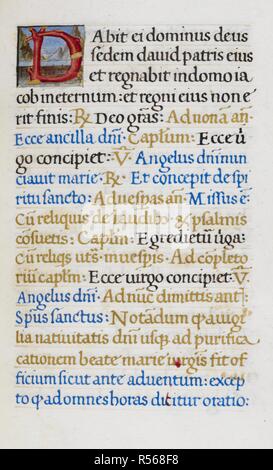 Dabit ei dominus deus
sedem dauid patris eius
et regnabit in domo ia
cob in eternum: et regni eius non e
rit finis: ℞ Deo gr̄as: Ad nonā an̄.
Ecce ancilla dn̄i: Captm̄: Ecce ui
go concipiet: ℣ Angelus dn̄i nun
ciauit marie: ℞ Et concepit de spi
ritu sancto: Ad uesp̄as an̄: Missus ē:
Cū reliquis de laudib⁹: & psalmis
cosuetis: Captm̄: Egredietur̄ uga:
Cū reliqs ut s̄: in uesp̄is: Ad copleto
riū captm̄: Ecce uirgo concipiet: ℣
Angelus dn̄i: Ad nūc dimittis ant̄:
Sp̄us sanctus: Notādum ꝙ a uigi
lia natiuitatis dn̄i usq; ad purifica
cationem beate marie uirgīs fit of
ficium sicut ante aduentum: excep
to ꝙ ad omnes horas dicitur oratio:
alamy
R568F8